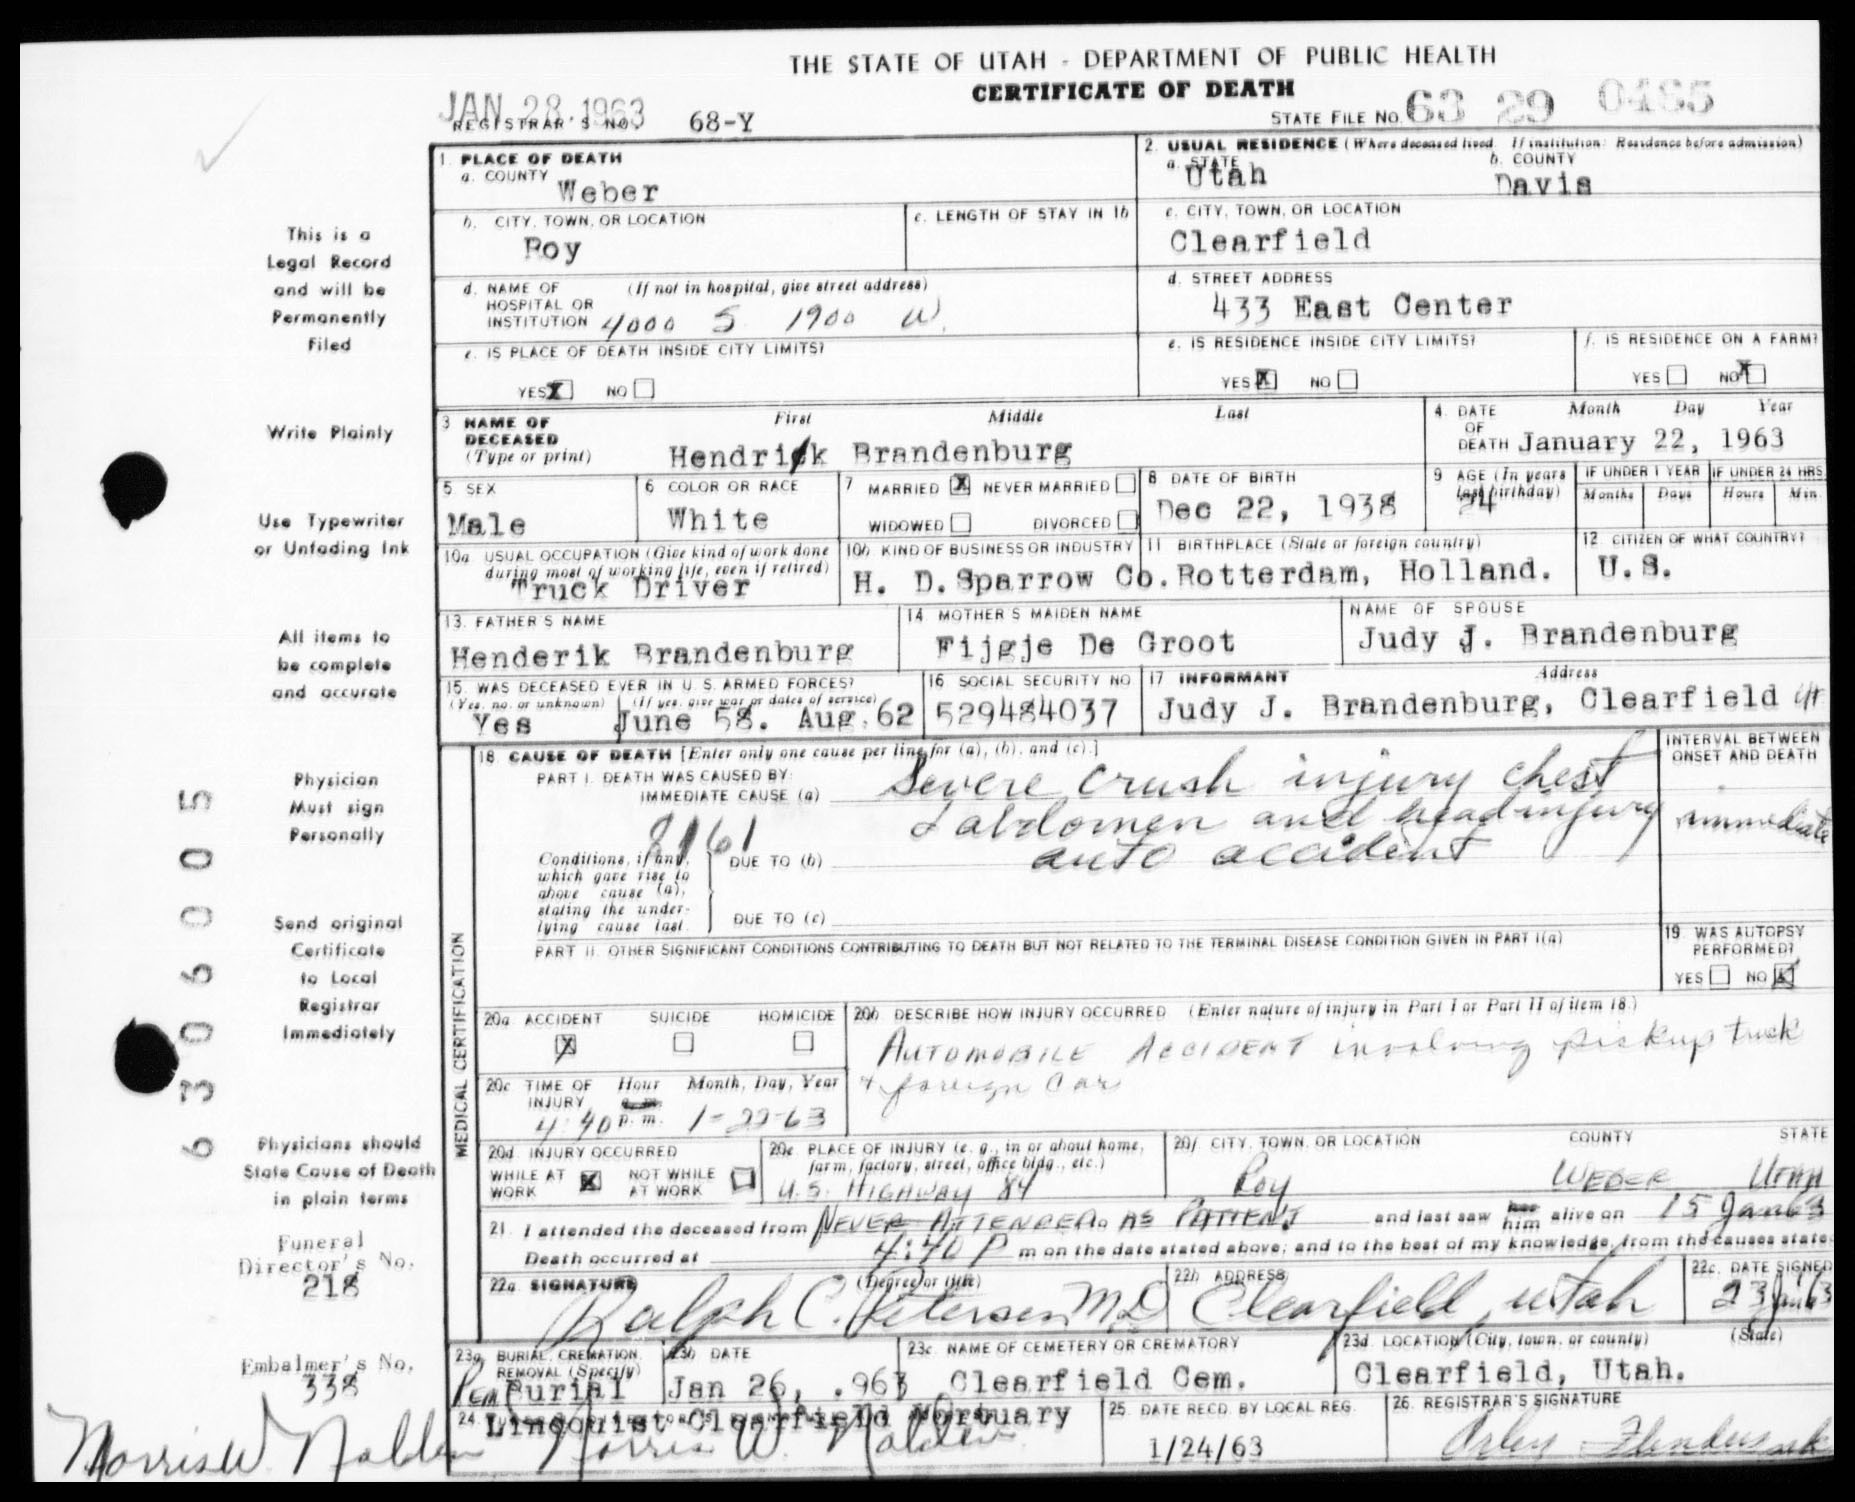 THE STATE OF UTAH - DEPARTMENT OF PUBLIC HEALTH
CERTIFICATE OF DEATH
JAN 28 1963
REGISTRAR'S NO. 68-Y
STATE FILE NO. 63 29 0465
This is a
Legal Record
and will be
Permanently
Filed
Write Plainly
Use Typewriter
or Unfading Ink
All items to
be complete
and accurate
Physician
Must sign
Personally
Send original
Certificate
to Local
Registrar
Immediately
Physicians should
State Cause of Death
in plain terms
Funeral
Director's No.
218
Embalmer's No.
338
Morris W. Nalder
6 3 0 6 0 0 5
1. PLACE OF DEATH
a. COUNTY Weber
2. USUAL RESIDENCE (Where deceased lived. If institution: Residence before admission)
a. STATE Utah
b. COUNTY Davis
b. CITY, TOWN, OR LOCATION
Roy
c. LENGTH OF STAY IN 1b
c. CITY, TOWN, OR LOCATION
Clearfield
d. NAME OF HOSPITAL OR INSTITUTION (If not in hospital, give street address)
4000 S. 1900 W.
d. STREET ADDRESS
433 East Center
e. IS PLACE OF DEATH INSIDE CITY LIMITS?
YES X NO
e. IS RESIDENCE INSIDE CITY LIMITS?
YES X NO
f. IS RESIDENCE ON A FARM?
YES NO X
3 NAME OF DECEASED (Type or print) First Middle Last
Hendrik Brandenburg
4. DATE OF DEATH Month Day Year
January 22, 1963
5 SEX
Male
6 COLOR OR RACE
White
7 MARRIED X NEVER MARRIED
WIDOWED DIVORCED
8 DATE OF BIRTH
Dec 22, 1938
9 AGE (In years last birthday)
24
IF UNDER 1 YEAR Months Days
IF UNDER 24 HRS. Hours Min.
10a USUAL OCCUPATION (Give kind of work done during most of working life, even if retired)
Truck Driver
10b. KIND OF BUSINESS OR INDUSTRY
H. D. Sparrow Co.
11 BIRTHPLACE (State or foreign country)
Rotterdam, Holland.
12 CITIZEN OF WHAT COUNTRY?
U.S.
13. FATHER'S NAME
Henderik Brandenburg
14 MOTHER'S MAIDEN NAME
Fijgje De Groot
NAME OF SPOUSE
Judy J. Brandenburg
15. WAS DECEASED EVER IN U. S. ARMED FORCES?
(Yes, no, or unknown) (If yes, give war or dates of service)
Yes June 58. Aug. 62
16 SOCIAL SECURITY NO
529484037
17 INFORMANT Address
Judy J. Brandenburg, Clearfield Ut
MEDICAL CERTIFICATION
18 CAUSE OF DEATH [Enter only one cause per line for (a), (b), and (c).]
INTERVAL BETWEEN ONSET AND DEATH
PART I. DEATH WAS CAUSED BY:
IMMEDIATE CAUSE (a) Severe crush injury chest
& abdomen and head injury
immediate
8161
Conditions, if any, which gave rise to above cause (a), stating the underlying cause last.
DUE TO (b) auto accident
DUE TO (c)
PART II. OTHER SIGNIFICANT CONDITIONS CONTRIBUTING TO DEATH BUT NOT RELATED TO THE TERMINAL DISEASE CONDITION GIVEN IN PART I(a)
19 WAS AUTOPSY PERFORMED?
YES NO X
20a ACCIDENT SUICIDE HOMICIDE
X
20b DESCRIBE HOW INJURY OCCURRED (Enter nature of injury in Part I or Part II of item 18.)
AUTOMOBILE ACCIDENT involving pickup truck
& foreign car
20c TIME OF INJURY Hour Month, Day, Year
4:40 a.m. p.m. 1-22-63
20d INJURY OCCURRED
WHILE AT WORK X NOT WHILE AT WORK
20e PLACE OF INJURY (e. g., in or about home, farm, factory, street, office bldg., etc.)
U.S. HIGHWAY 84
20f CITY, TOWN, OR LOCATION COUNTY STATE
Roy WEBER UTAH
21. I attended the deceased from NEVER ATTENDED AS PATIENT and last saw her him alive on 15 Jan 63
Death occurred at 4:40 P m on the date stated above; and to the best of my knowledge, from the causes state
22a SIGNATURE (Degree or title)
Ralph C. Petersen M.D.
22b ADDRESS
Clearfield, Utah
22c. DATE SIGNED
23 Jan 63
23a BURIAL, CREMATION, REMOVAL (Specify)
Burial
23b DATE
Jan 26, .963
23c NAME OF CEMETERY OR CREMATORY
Clearfield Cem.
23d. LOCATION (City, town, or county) (State)
Clearfield, Utah.
24. Lindquist Clearfield Mortuary
Morris W. Nalder
25 DATE RECD. BY LOCAL REG.
1/24/63
26. REGISTRAR'S SIGNATURE